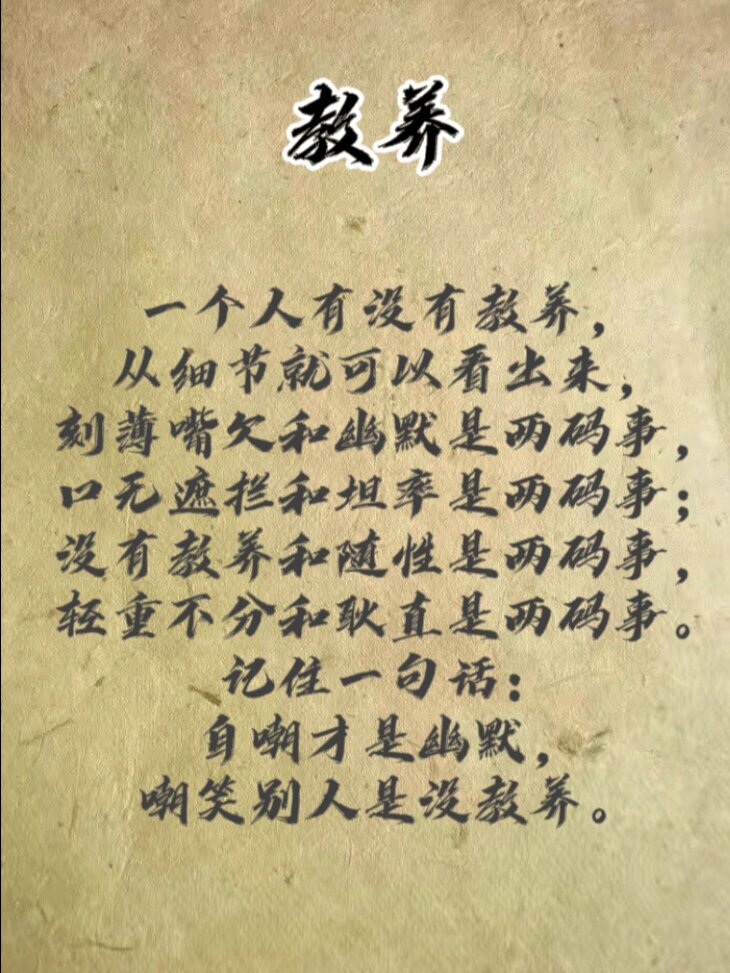 教养
一个人有没有教养，
从细节就可以看出来，
刻薄嘴欠和幽默是两码事，
口无遮拦和坦率是两码事；
没有教养和随性是两码事，
轻重不分和耿直是两码事。
记住一句话：
自嘲才是幽默，
嘲笑别人是没教养。